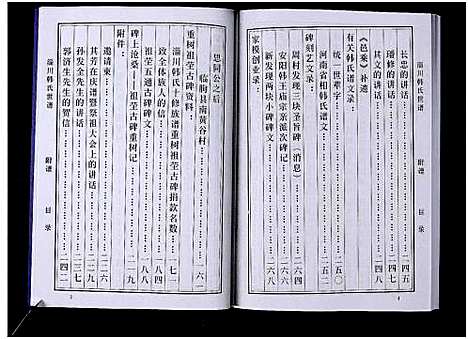 淄川韩氏世谱 附谱 目录
长忠的讲话……二四五
璠修的讲话……二四七
其文的讲话……二四八
《邑乘》补遗
有关韩氏谱文录：
统一世辈字……二五〇
河南省相韩氏谱文……二五二
碑刻艺文录：
周村发现三块圣旨碑（消息）……二六四
安阳韩王庙宗亲派次碑记……二六六
新发现两块小碑碑文……二六八
家模创业录：
思同公之后
临朐县南黄谷村……一六二
重树祖茔古碑资料：
淄川韩氏十修族谱重树祖茔古碑捐款名数……一七一
致全体族人的信……一八四
祖茔五通古碑碑文……一八八
碑上沧桑——祖茔古碑重树记……二一九
附件：
邀请柬……二三六
其芳在庆谱暨祭祖大会上的讲话……
孙发全先生的讲话……二三七
郭济生先生的贺信……二四二
淄川韩氏世谱 附谱 目录